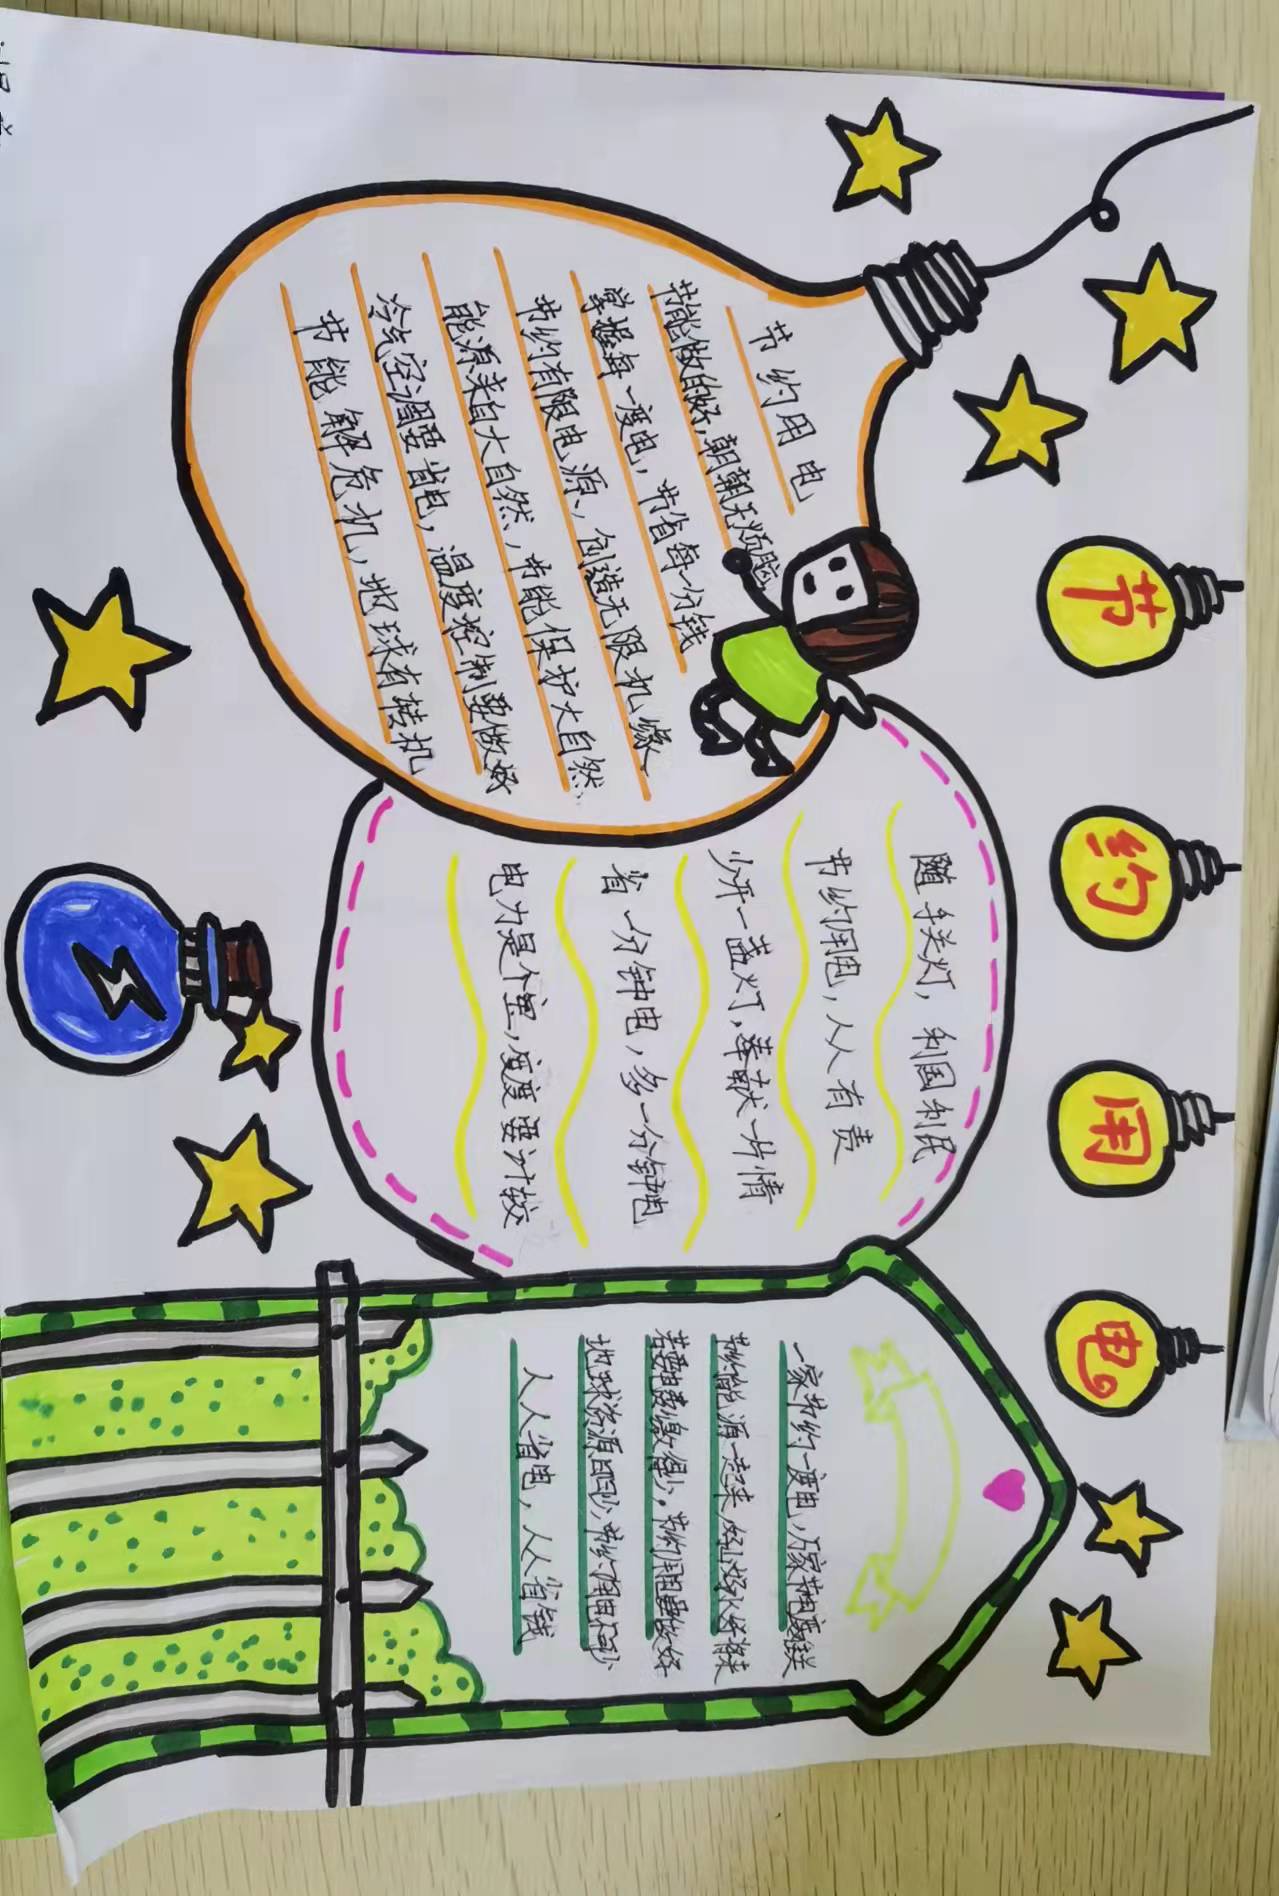 节约用电
节约用电
节能做的好，朝朝无烦脑
掌握每一度电，节省每一分钱
节约有限电源，创造无限机缘
能源来自大自然，节能保护大自然
冷气空调要省电，温度控制要做好
节能解危机，地球有转机
随手关灯，利国利民
节约用电，人人有责
少开一盏灯，奉献一片情
省一分钟电，多一分钟电
电力是个宝，度度要计较
一家节约一度电，万家节电
节约能源一起来，好山好水好将来
若要电费缴得少，节约用电要做好
地球资源
人人省电，人人省钱